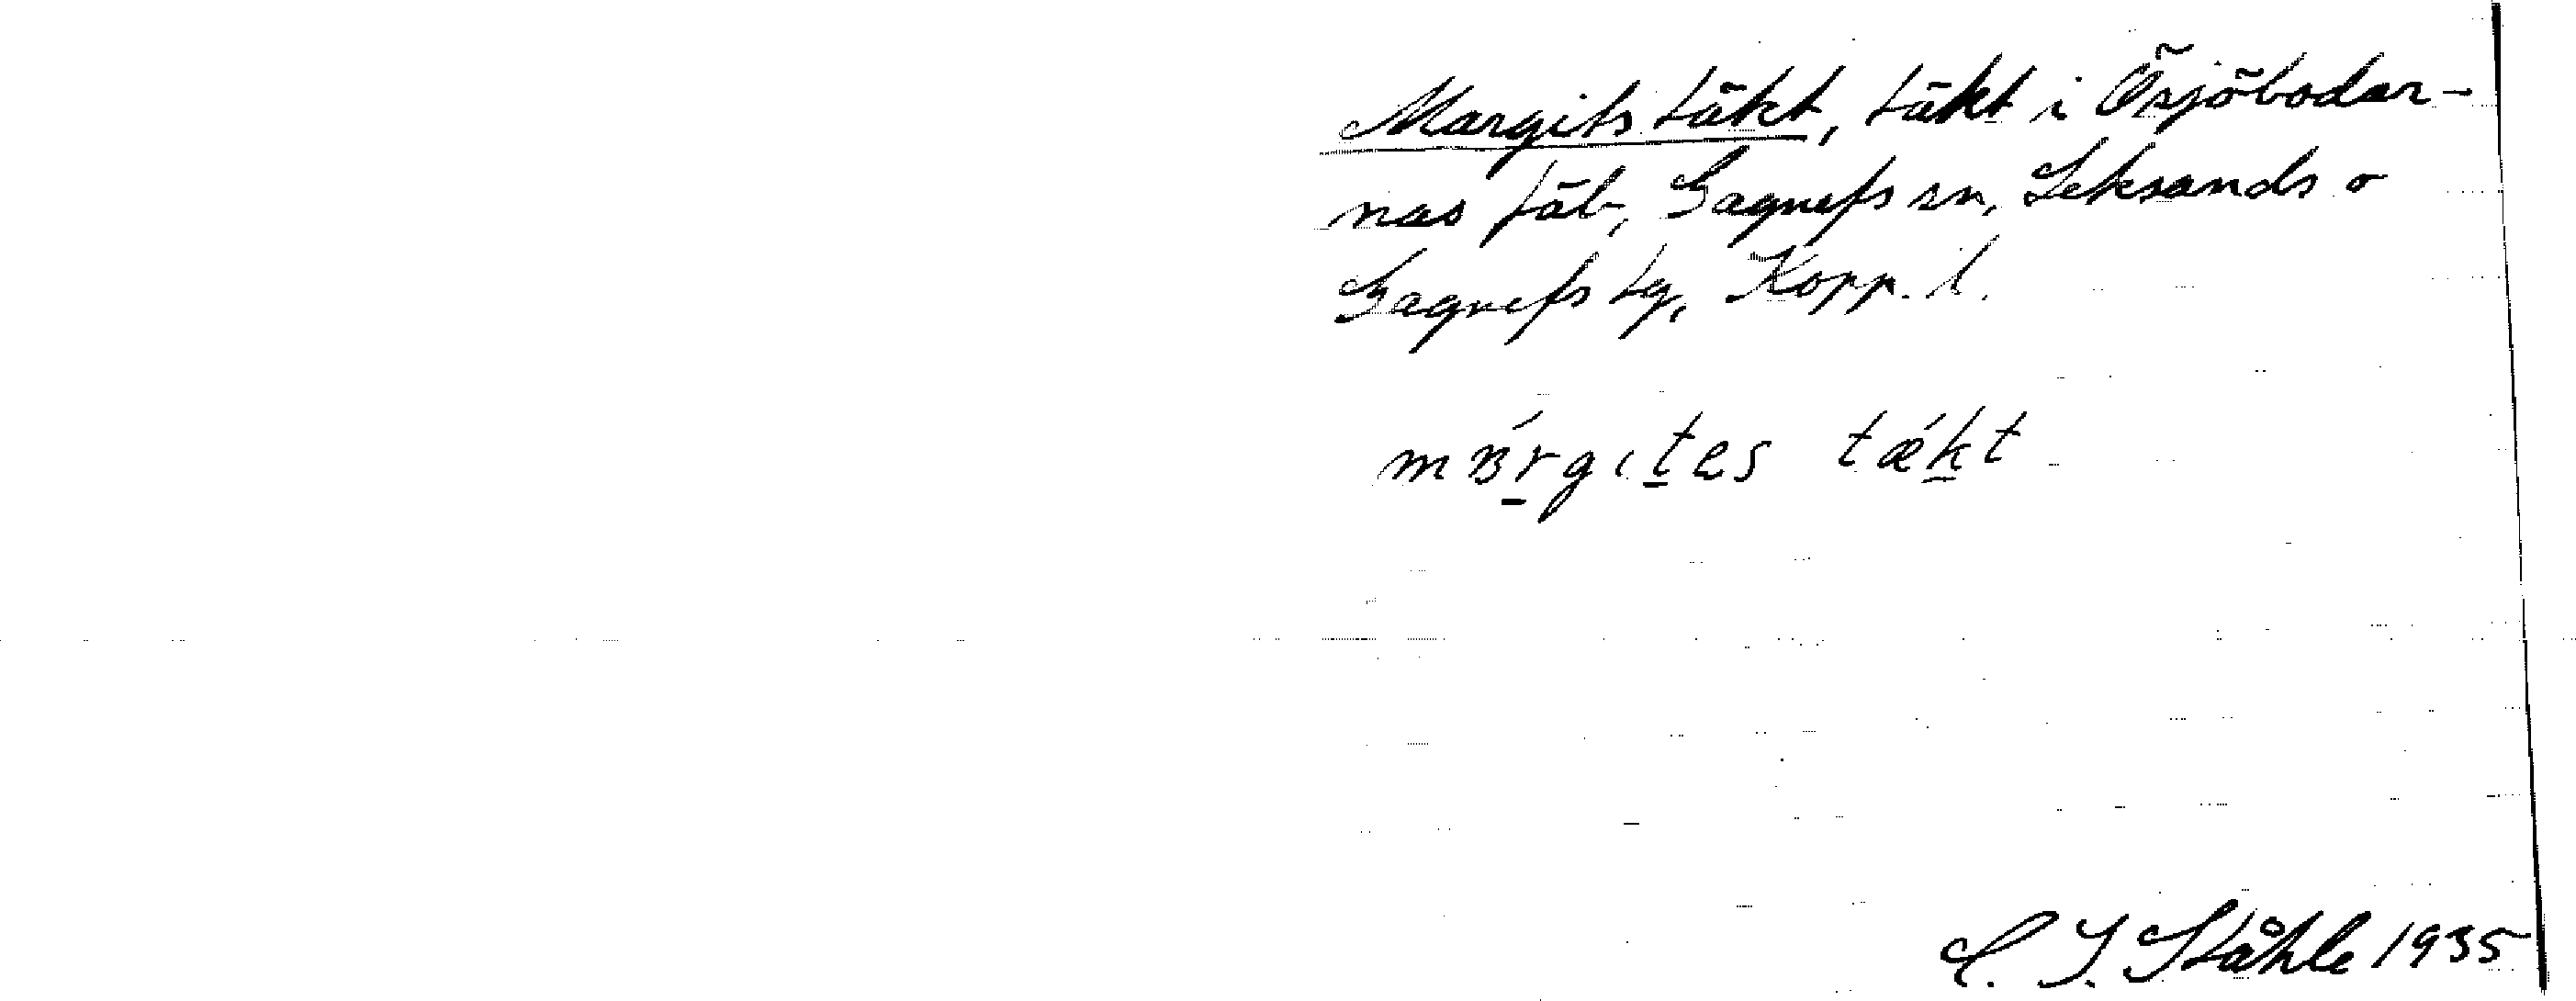 Margits täkt, täkt i Ösjöbodar-
nas fäb, Gagnefs sn, Leksands o
Gagnefs tg, Kopp. l.
mʙ́rgıtes tǽkt
C. I. Ståhle 1935